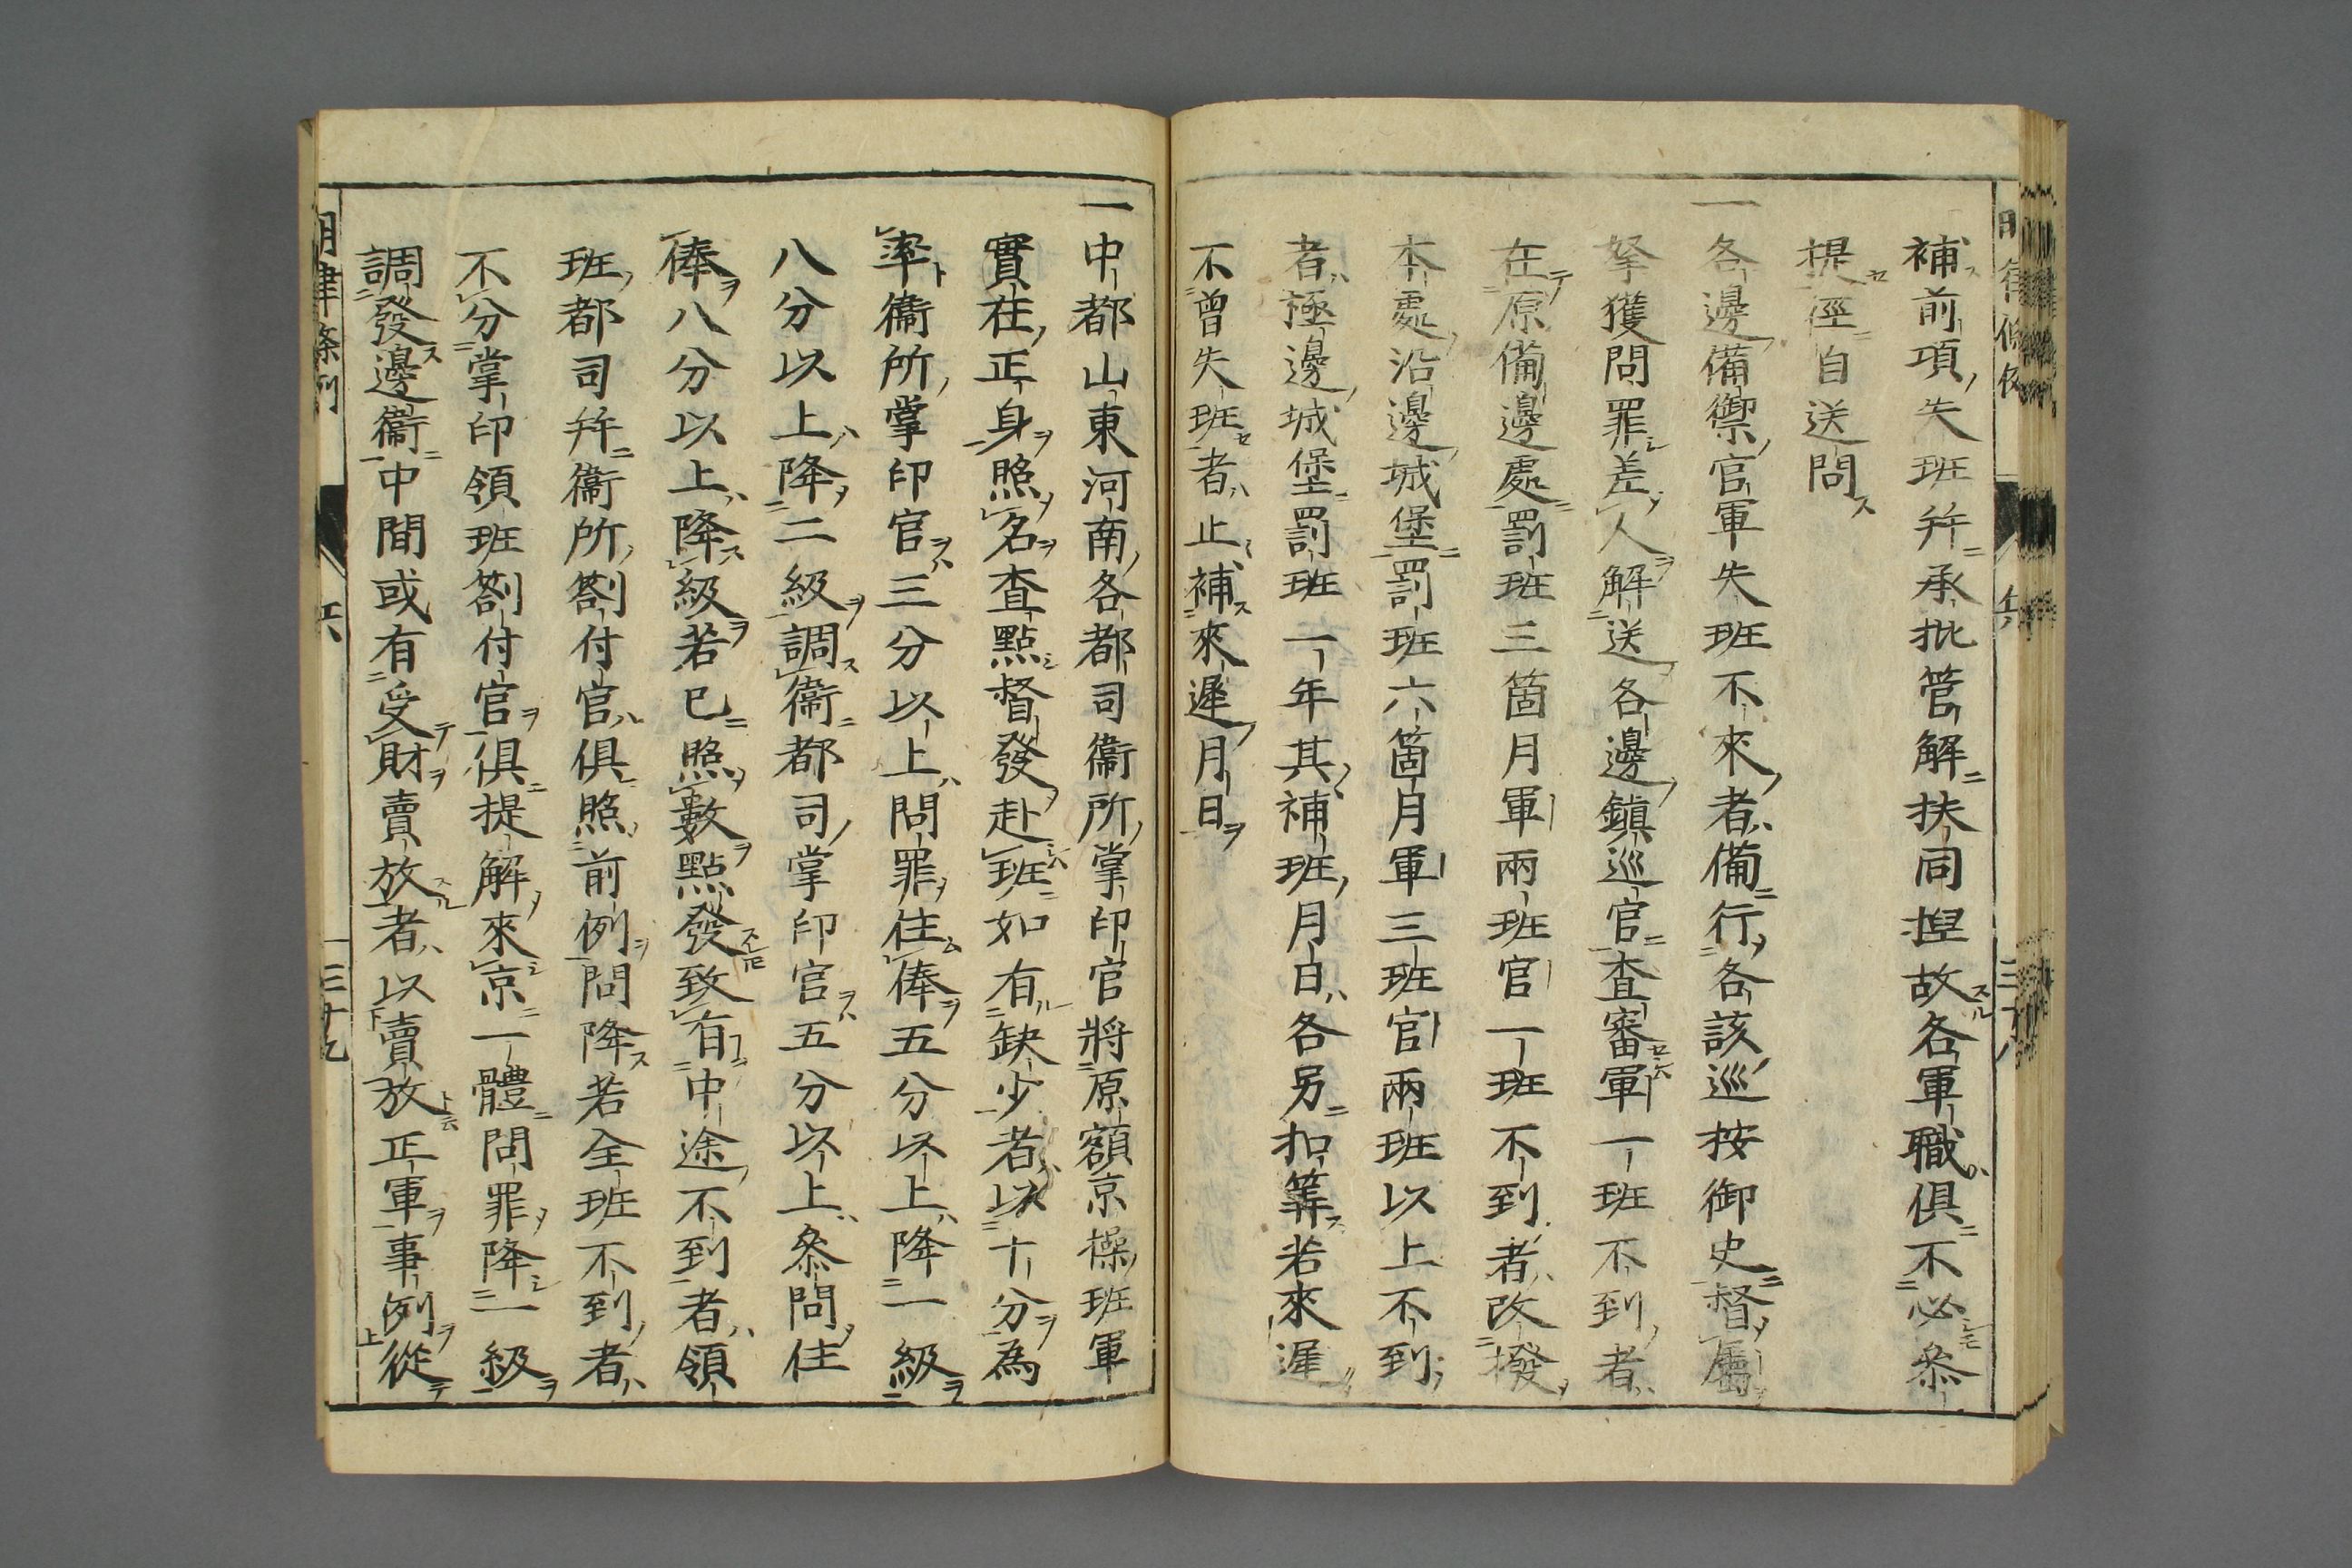 補前項失班幷承批管解扶同捏故各軍職俱不必參
提徑自送問
一各邊備禦官軍失班不來者備行各該巡按御史督屬
拏獲問罪差人解送各邊鎮巡官查審軍一班不到者
在原備邊處罰班三箇月軍兩班官一班不到者改撥
本處沿邊城堡罰班六箇月軍三班官兩班以上不到
者極邊城堡罰班一年其補班月日各另扣筭若來遲
不曾失班者止補來遲月日
一中都山東河南各都司衞所掌印官將原額京操班軍
實在正身照名查點督發赴班如有缺少者以十分為
率衞所掌印官三分以上問罪住俸五分以上降一級
八分以上降二級調衞都司掌印官五分以上參問住
俸八分以上降級若已照數點發致有中途不到者領
班都司幷衞所劄付官俱照前例問降若全班不到者
不分掌印領班劄付官俱提解來京一體問罪降一級
調發邊衞中間或有受財賣放者以賣放正軍事例從
明律條例 兵 三十九